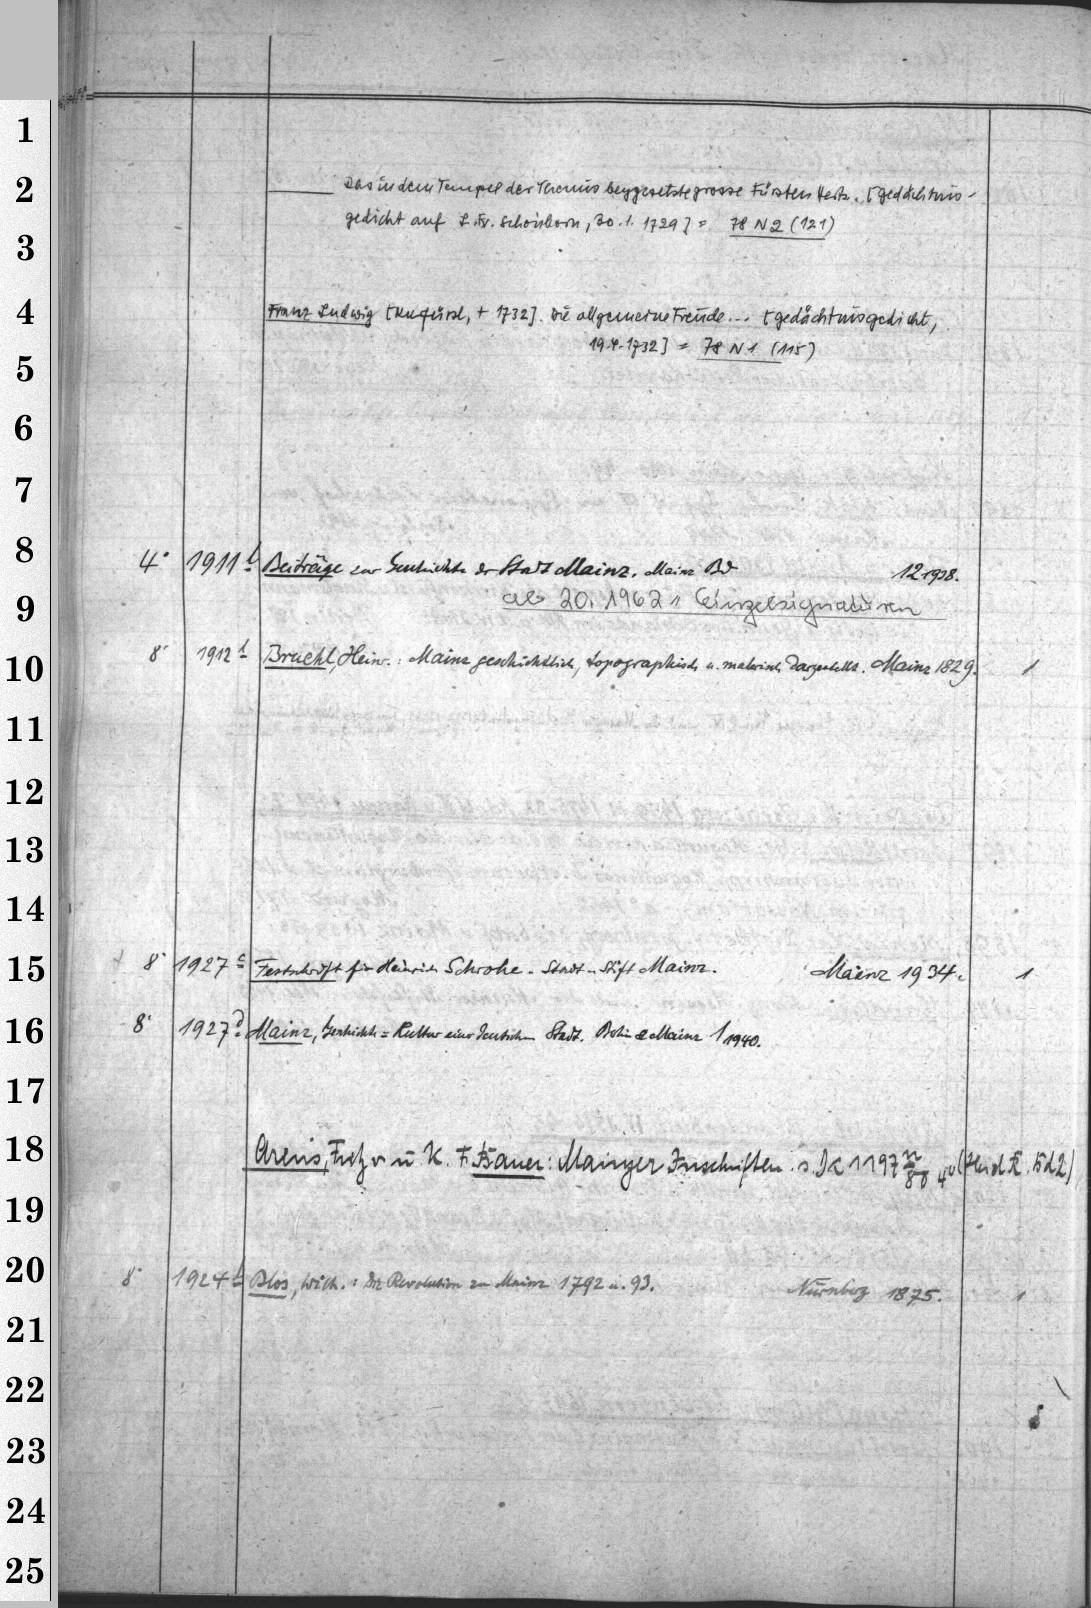 1
2
3
4
5
6
7
8
9
10
11
12
13
14
15
16
17
18
19
20
21
22
23
24
25
Das in dem Tempel der Themis beygesetzte grosse Fürsten Hertz. [Gedächtnis-
gedicht auf L. Fr. Schönborn, 30.1.1729] = 78 N 2 (121)
Franz Ludwig [Kurfürst, + 1732]. Die allgemeine Freude... [Gedächtnisgedicht,
19.4.1732] = 78 N 1 (115)
4° 1911 b Beiträge zur Geschichte der Stadt Mainz. Mainz Bd 12 1938.
ab 20. 1962 Einzelsignaturen
8° 1912 d Bruehl, Heinr.: Mainz geschichtlich, topographisch u. malerisch dargestellt. Mainz 1829. 1
8° 1927 c Festschrift für Heinrich Schrohe. Stadt u. Stift Mainz. Mainz 1934. 1
8° 1927 d Mainz, Geschichte = Kultur einer deutschen Stadt. Mainz 1 1940.
Arens, Fritz v u. K. F. Bauer: Mainzer Inschriften. s. 1197 n/80 4°
8° 1924 b Blos, Wilh.: Die Revolution zu Mainz 1792 u. 93. Nürnberg 1875. 1